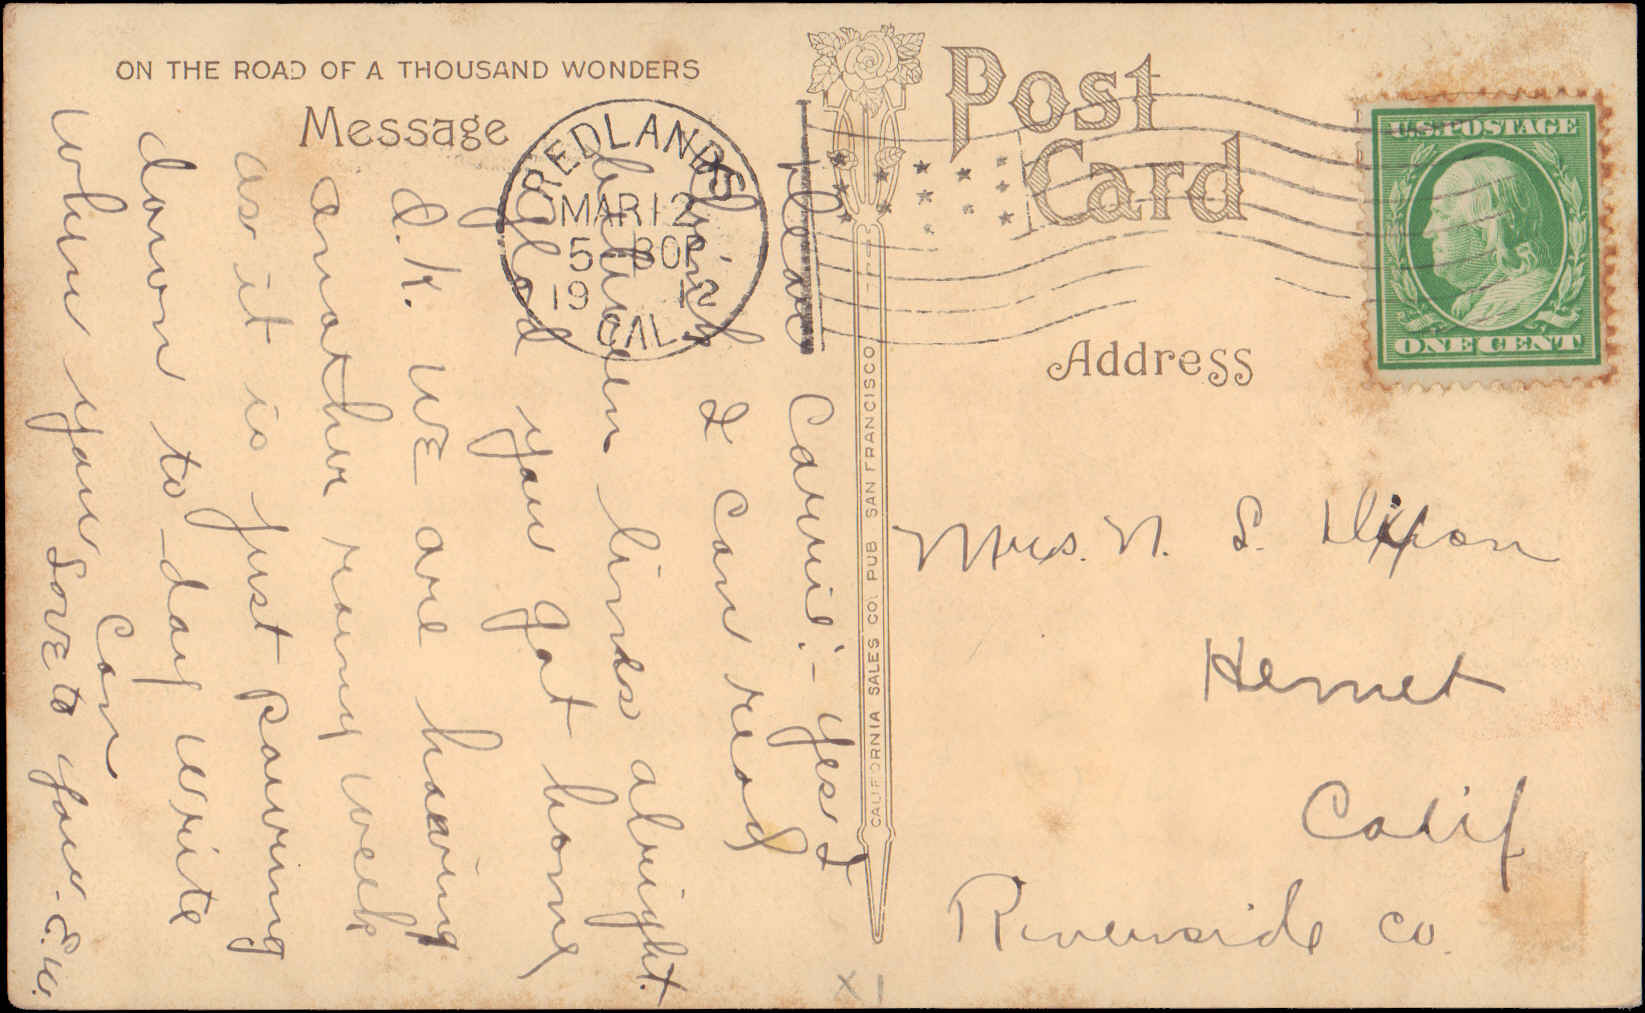 ON THE ROAD OF A THOUSAND WONDERS
Message
Post
Card
Address
REDLANDS
MAR 12
5 30P
19 12
CAL.
U.S. POSTAGE
ONE CENT
CALIFORNIA SALES CO. PUB SAN FRANCISCO
Mrs. N. S. Dixon
Hemet
Calif
Riverside Co.
Dear Carrie:- Yes I
think I can read
between lines alright.
glad you got home
O.K. We are having
another rainy week
as it is just pouring
down to-day write
when you
can
Love to you. E.W.
X1